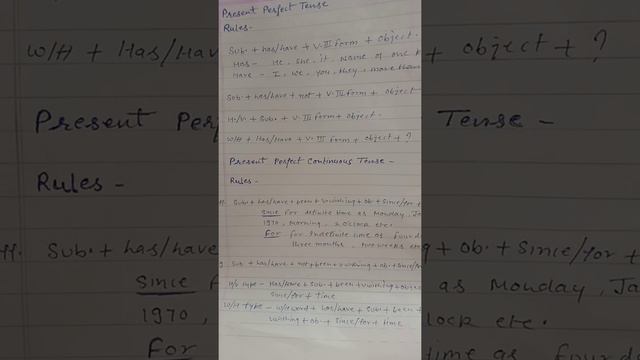 Present Perfect Tense
Rules-
Sub. + has/have + V.III form + object
Has - He, She, it, Name of one
Have - I, we, you, they, more than
Sub. + has/have + not + V.III form + object
H/V. + Sub. + V.III form + object.
W/H + Has/Have + V.III form + object + ?
Present Perfect Continuous Tense -
Rules -
Sub. + has/have + been + V.with ing + ob + since/for +
Since for definite time as Monday, Ja
1970, morning, 2 o'clock etc.
For for Indefinite time as four d
three months, two weeks etc
Sub + has/have + not + been + V.with ing + ob. + since/for
H/V type - Has/Have + sub + been + V.with ing + object
since/for + time
W/H type - W/H word + has/have + sub + been +
V.with ing + ob. + since/for + time
W/H + Has/Hav
object + ?
Present Per
Tense -
Rules -
Sub. + has/have
g + ob. + since/for +
Since
as Monday, Ja
1970,
lock etc.
For
time as four d